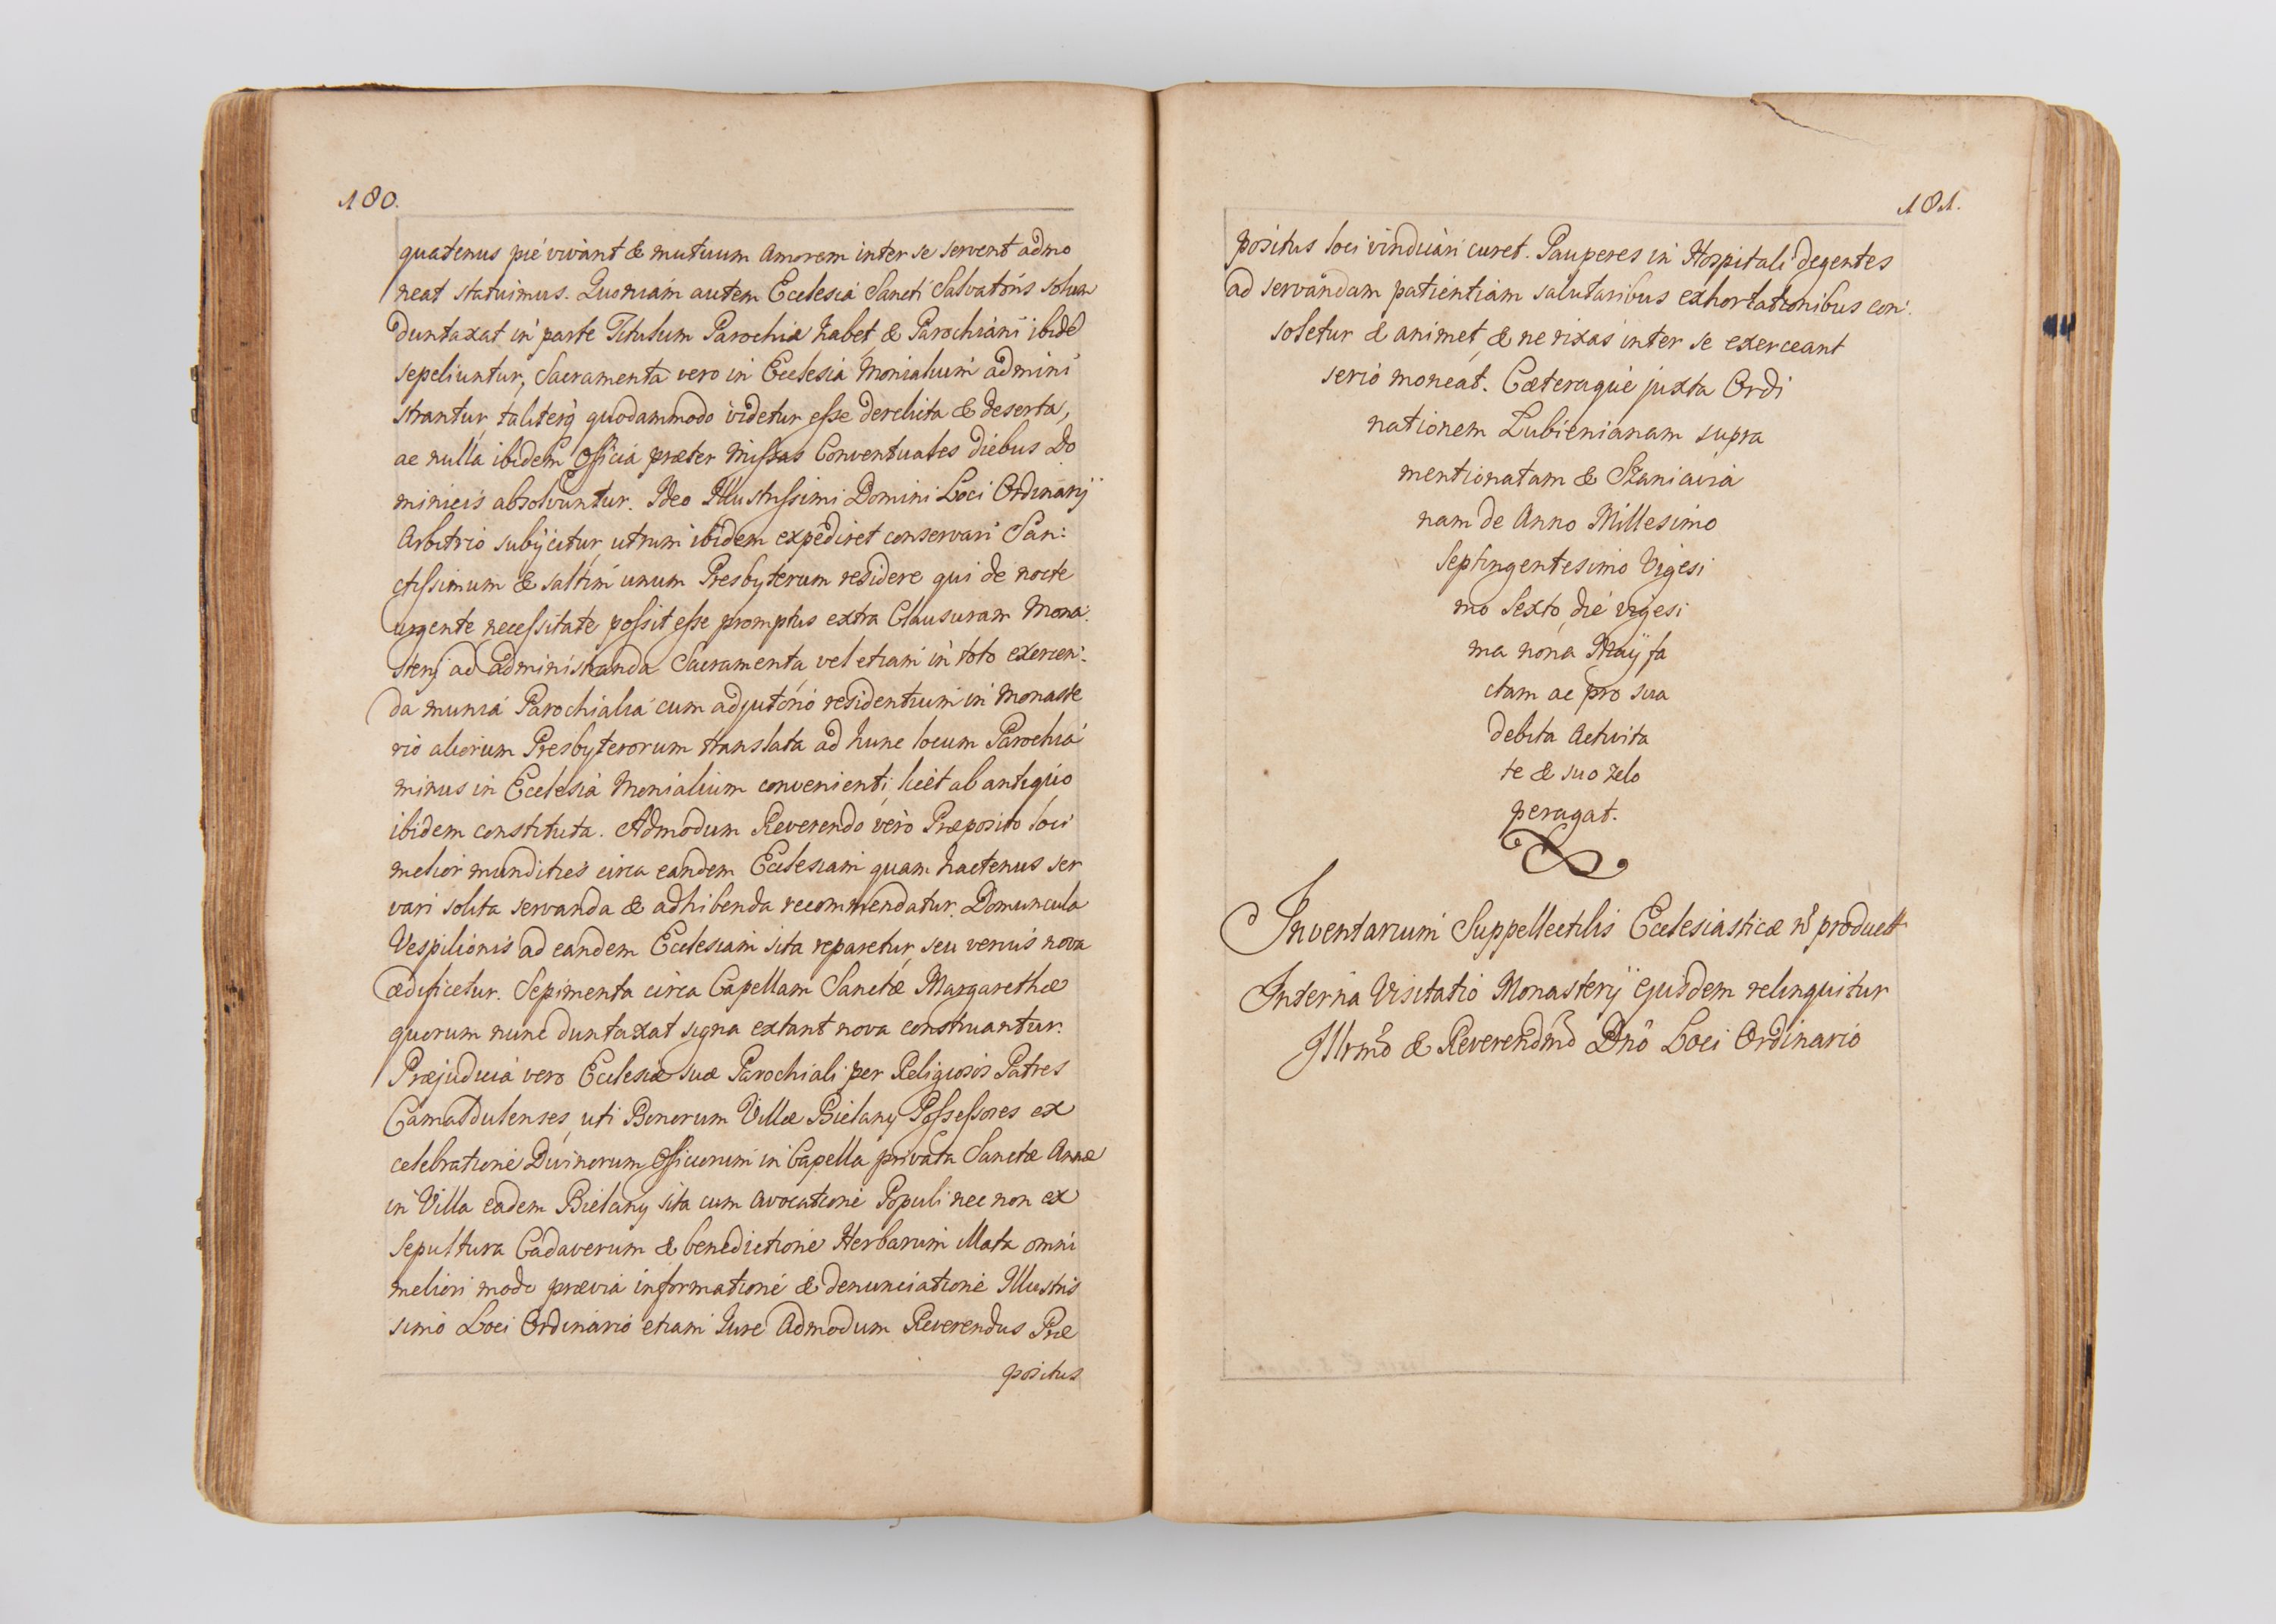 180.
quatenus pié vivant & mutuum Amorem inter se servent admo
neat statuimus. Quoniam autem Ecclesia Sancti Salvatoris solum
duntaxat in parte Titulum Parochiæ habet, & Parochiani ibidē
sepeliuntur, Sacramenta vero in Ecclesia Monialium admini
strantur, taliterq́ quodammodo videtur esse derelicta & deserta,
ac nulla ibidem Officia præter Missas Conventuales diebus Do
minicis absolvuntur. Ideo Illustrissimi Domini Loci Ordinarij
Arbitrio subijcitur, utrum ibidem expediret conservari San:
ctissimum & saltim unum Presbyterum residere qui de nocte
urgente necessitate possit esse promptus extra Clausuram Mona:
sterij ad administranda Sacramenta, vel etiam in toto exercen:
da munia Parochialia cum adjutorio residentium in Monaste
rio aliorum Presbyterorum translata ad hunc locum Parochia
minus in Ecclesia Monialium convenienti, licet ab antiquo
ibidem constituta. Admodum Reverendo vero Præposito loci
melior mundities circa eandem Ecclesiam quam hactenus ser
vari solita servanda & adhibenda recommendatur. Domuncula
Vespilionis ad eandem Ecclesiam sita reparetur, seu verius nova
ædificetur. Sepimenta circa Capellam Sanctæ Margarethæ
quorum nunc duntaxat signa extant nova construantur.
Præjudicia vero Ecclesiæ suæ Parochiali per Religiosos Patres
Camaldulenses, uti Bonorum Villæ Bielany Possessores ex
celebratione Divinorum Officiorum in Capella privata Sanctæ Annæ
in Villa eadem Bielany sita cum avocatione Populi nec non ex
Sepultura Cadaverum & benedictione Herbarum illata omni
meliori modo prævia informatione & denunciatione Illustris
simo Loci Ordinario etiam Jure Admodum Reverendus Præ
positus
181.
positus loci vindicari curet. Pauperes in Hospitali degentes
ad servandam patientiam salutaribus exhortationibus con:
soletur & animet, & ne rixas inter se exerceant
serio moneat. Cæteraque juxta Ordi
nationem Lubienianam supra
mentionatam & Szaniavia
nam de Anno Millesimo
Septingentesimo Vigesi
mo Sexto, die vigesi
ma nona Maij fa
ctam ac pro sua
debita Activita
te & suo zelo
peragat.
Inventarium Suppellectilis Ecclesiasticæ n̄ product
Interna Visitatio Monasterij ejusdem relinquitur
Illrm̄o & Reverendm̄o Dn̄o Loci Ordinario